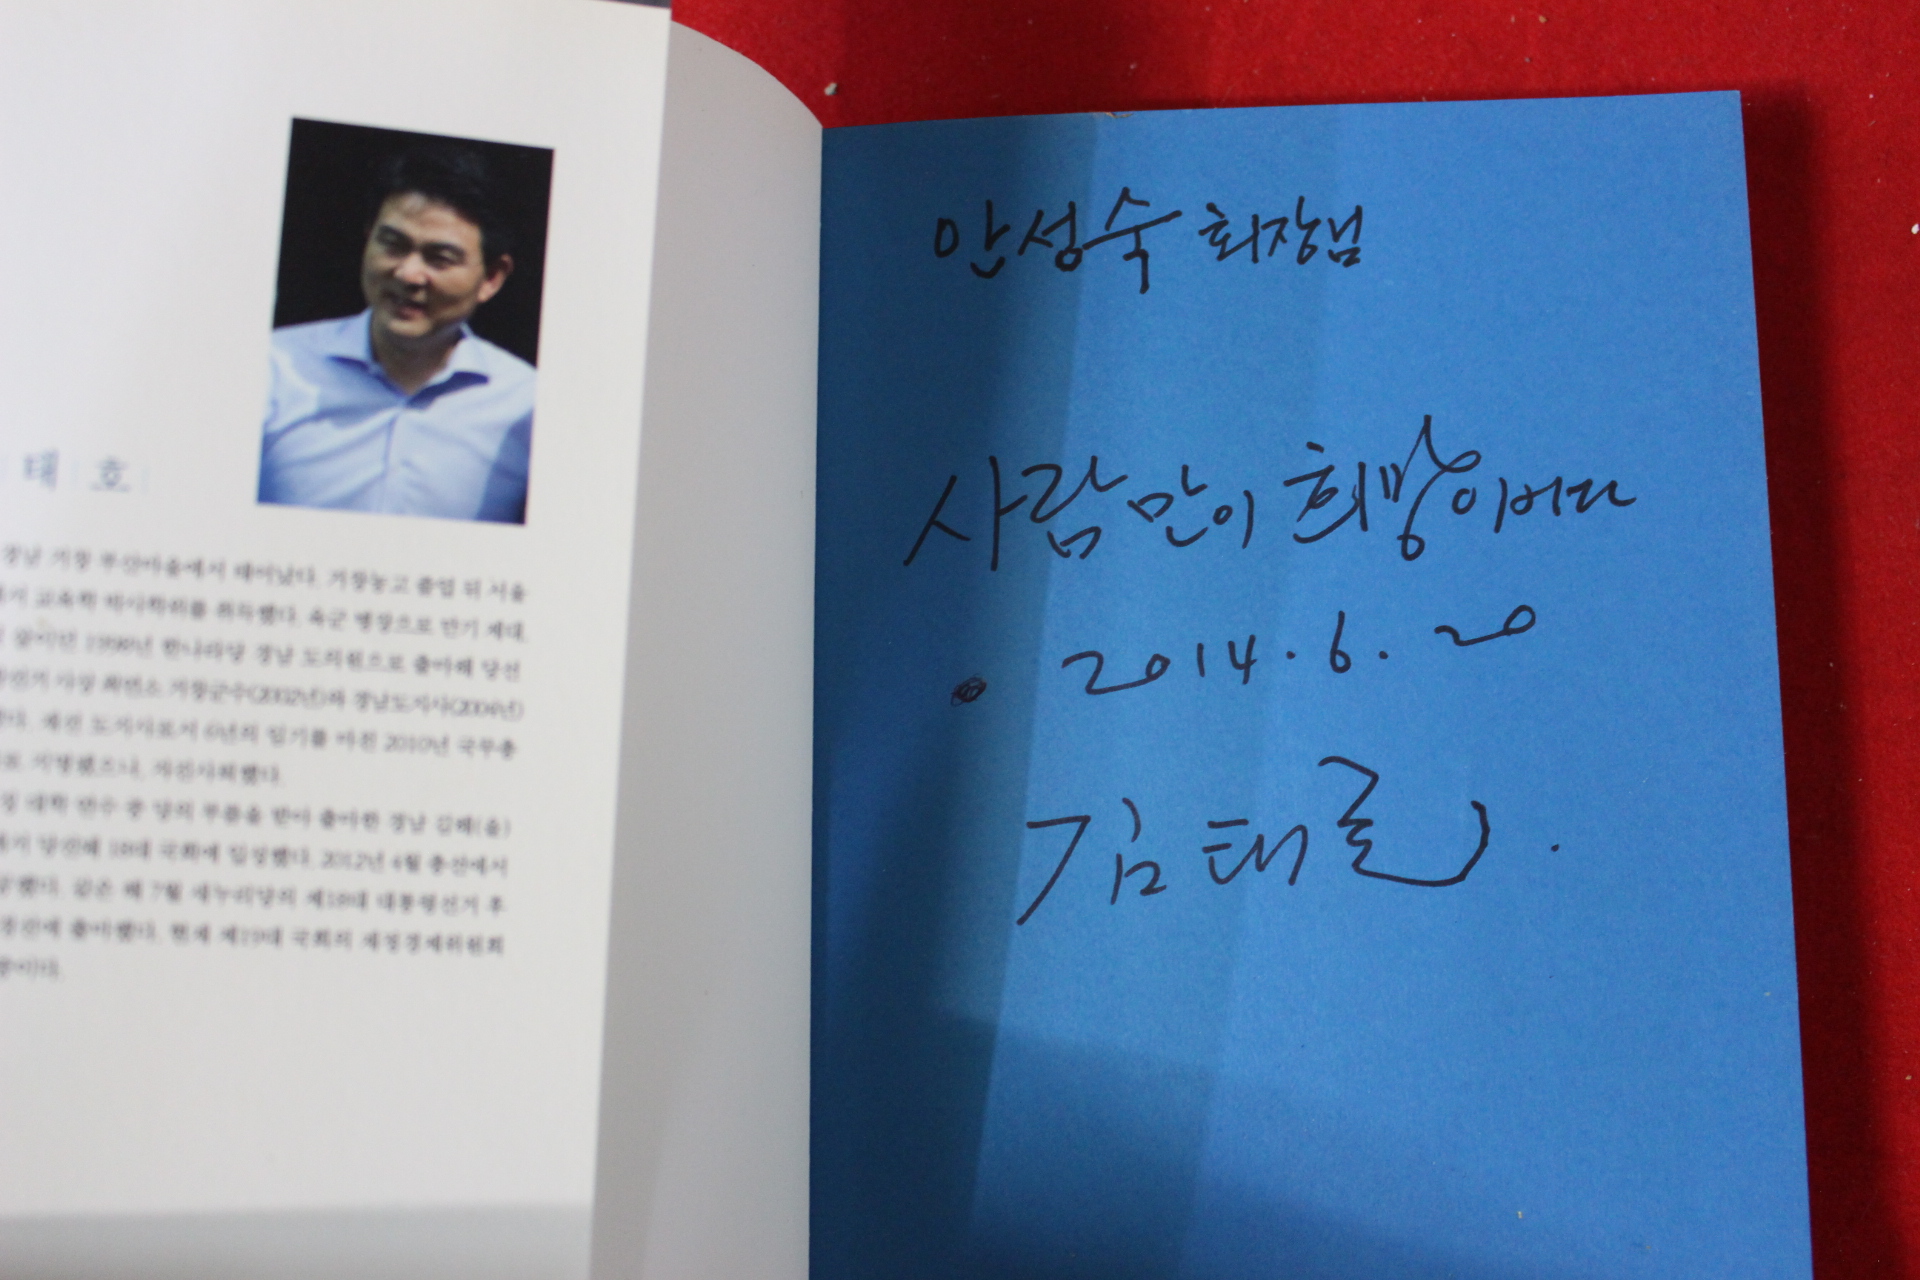 태 호
경남 거창 부산마을에서 태어났다. 거창농고 졸업 뒤 서울
교육학 박사학위를 취득했다. 육군 병장으로 만기 제대.
1998년 한나라당 경남 도의원으로 출마해 당선
사상 최연소 거창군수(2002년)와 경남도지사(2004년)
재선 도지사로서 6년의 임기를 마친 2010년 국무총
지명됐으나, 자진사퇴했다.
대학 연수 중 당의 부름을 받아 출마한 경남 김해(을)
당선돼 18대 국회에 입성했다. 2012년 4월 총선에서
했다. 같은 해 7월 새누리당의 제18대 대통령선거 후
경선에 출마했다. 현재 제19대 국회의 재정경제위원회
안성숙 회장님
사람만이 희망이다
2014. 6. 20
김태호.